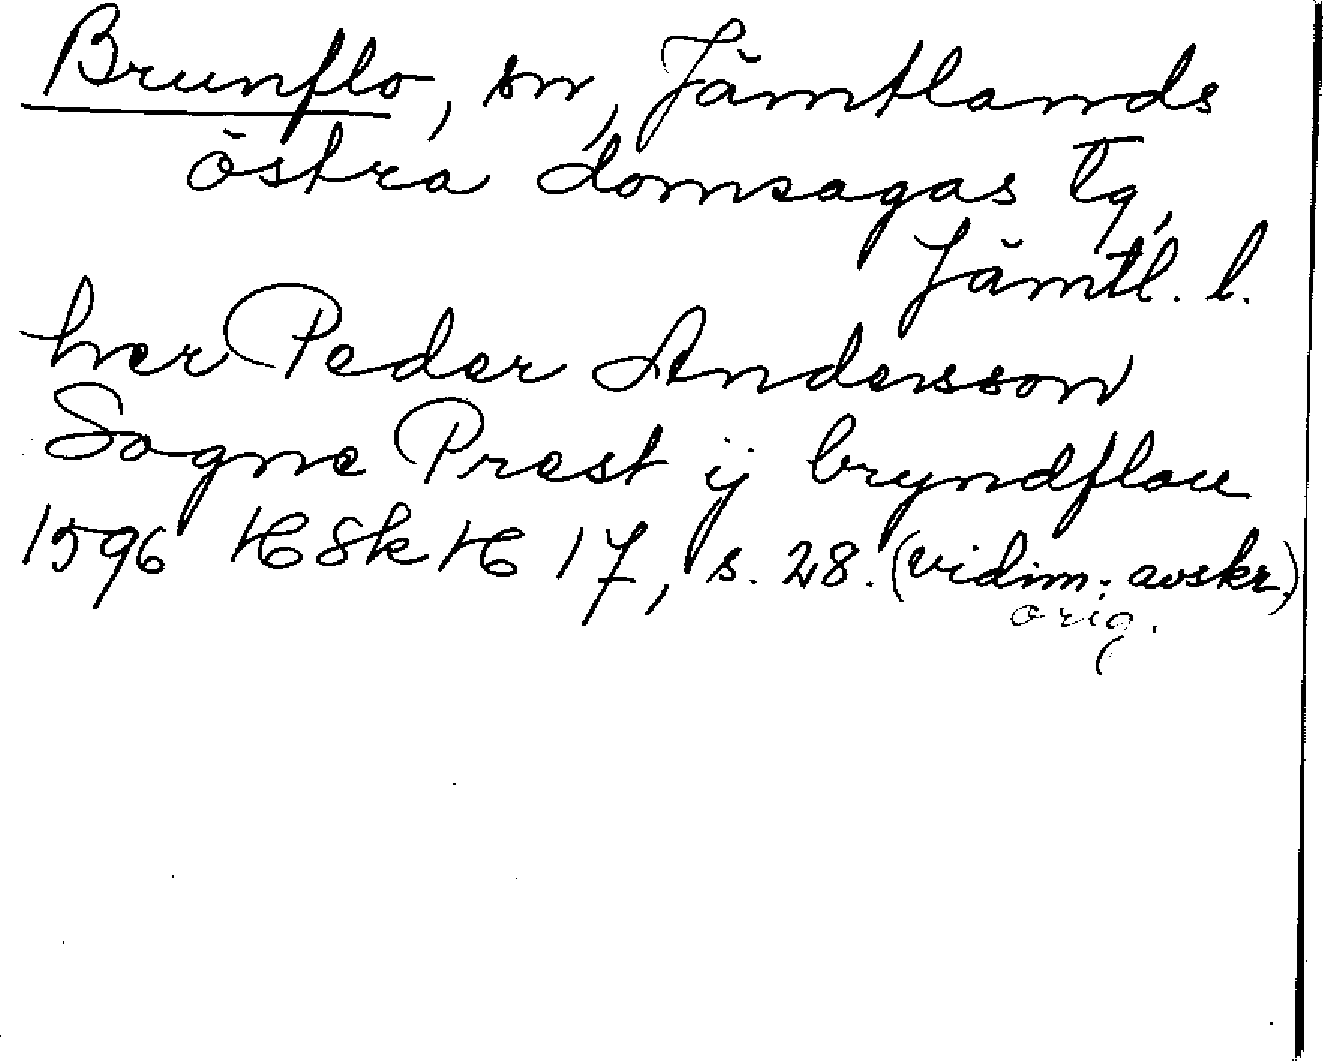 Brunflo, sn, Jämtlands
östra domsagas tg,
Jämtl. l.
her Peder Andersson
Sogne Prest ij bryndflou
1596 HSkH 17, s. 28. (vidim. avskr.)
orig.